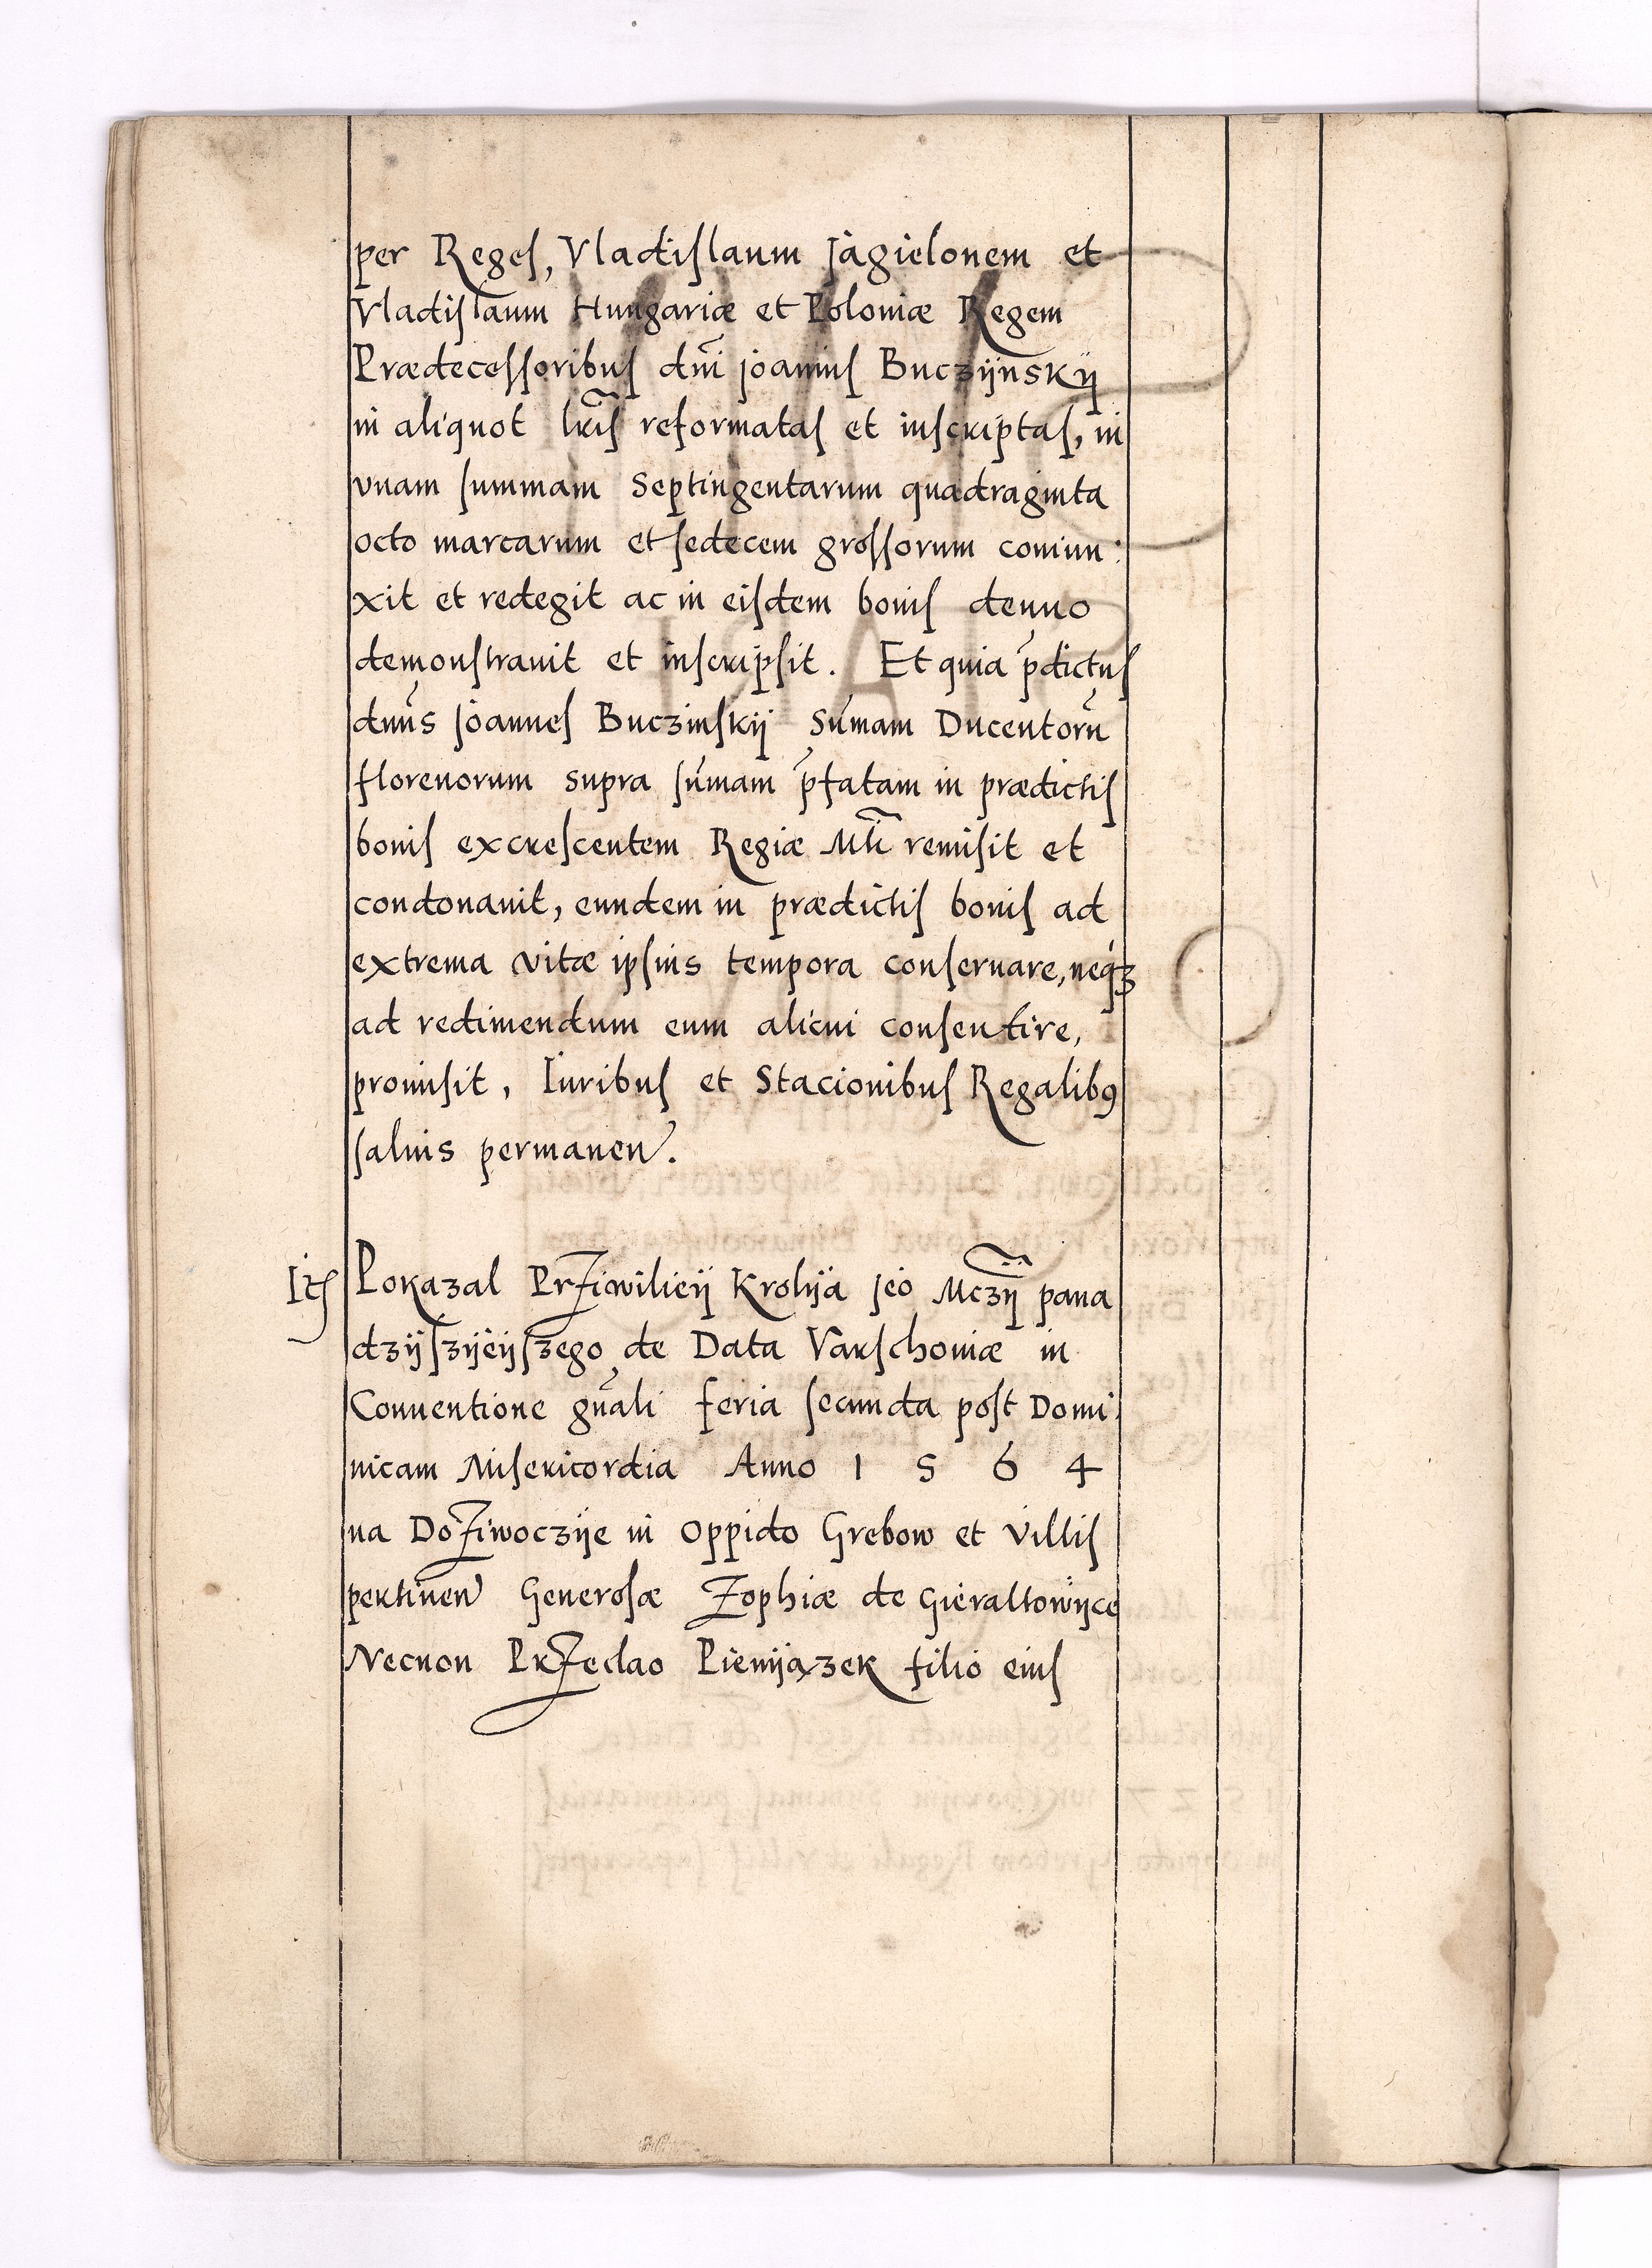 per Regeſ, Vladiſlaum Jagielonem et
Vladiſlaum Hungariæ et Poloniæ Regem
Prædeceſſoribuſ dnī Joanniſ Buczÿnskÿ
in aliquot lrīſ reformataſ et inſcriptaſ, in
vnam ſummam Septingentarum quadraginta
octo marcarum et ſedecem groſſorum coniun:
xit et redegit ac in eiſdem boniſ denuo
demonſtrauit et inſcripſit. Et quia p̄dictuſ
dnūs Joanneſ Buczinſkÿ Sum̄am Ducentorū
florenorum supra ſum̄am p̄fatam in prædictiſ
boniſ excreſcentem Regiæ Mti remiſit et
condonauit, eundem in prædictiſ boniſ ad
extrema vitæ ipſius tempora conſeruare, neqꝫ
ad redimendum eum alicui conſentire,
promiſit, Iuribuſ et Stacionibuſ Regalibꝰ
ſaluis permanen.
Itſ Pokazal Prziwilieÿ Krolÿa jeo Mczÿ pana
dzÿſzÿeÿſzego de Data Varſchoviæ in
Conuentione gnāli feria ſecunda poſt Domi:
nicam Miſericordia Anno 1 5 6 4
na Doziwoczÿe in Oppido Grebow et villiſ
pertinen Generoſæ Zophiæ de Gieraltowÿce
Necnon Przeclao Pienÿązek filio eiuſ